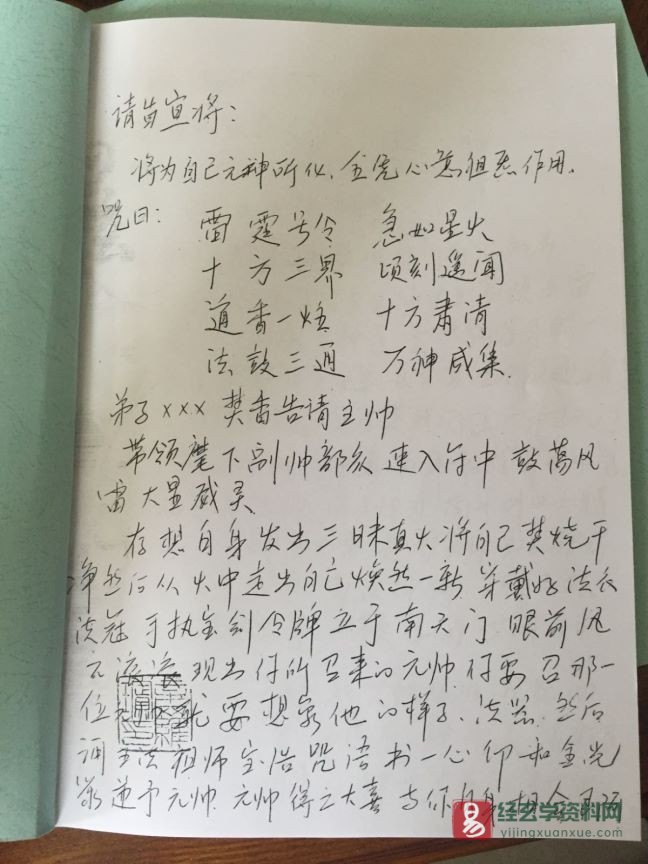 请旨宣将：
将为自己元神所化，全凭心意祖炁作用。
咒曰：雷霆号令 急如星火
十方三界 顷刻遥闻
道香一炷 十方肃清
法鼓三通 万神咸集
弟子xxx 焚香告请主帅
带领麾下副帅部众 速入符中 鼓荡风
雷大显威灵
存想自身发出三昧真火将自己焚烧干
净然后从火中走出自己焕然一新 穿戴好法衣
法冠 手执宝剑令牌立于南天门 眼前风
云滚滚 现出你所召来的元帅 你要召那一
位 就要想象他的样子、法器 然后
诵 主法祖师宝诰咒语书一心印和金光
篆递予元帅 元帅得之大喜 与你
易 经玄学资料网
yijingxuanxue.com